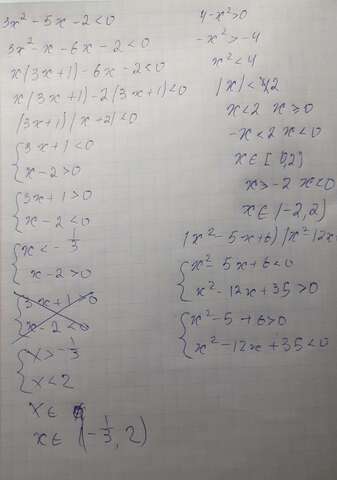 3x² - 5x - 2 < 0
3x² - x - 6x - 2 < 0
x(3x+1) - 6x - 2 < 0
x(3x+1) - 2(3x+1) < 0
(3x+1)(x+2) < 0
{3x+1 < 0
x - 2 > 0
{3x+1 > 0
x - 2 < 0
{x < -1/3
x - 2 > 0
{3x+1 > 0
x - 2 < 0
{x > -1/3
x < 2
x ∈
x ∈ (-1/3, 2)
4 - x² > 0
-x² > -4
x² < 4
|x| < 2
x < 2 x ≥ 0
-x < 2 x < 0
x ∈ [0,2)
x > -2 x < 0
x ∈ (-2, 2)
(x² - 5x + 6)(x² 12x
{x² - 5x + 6 < 0
x² - 12x + 35 > 0
{x² - 5 + 6 > 0
x² - 12x + 35 < 0